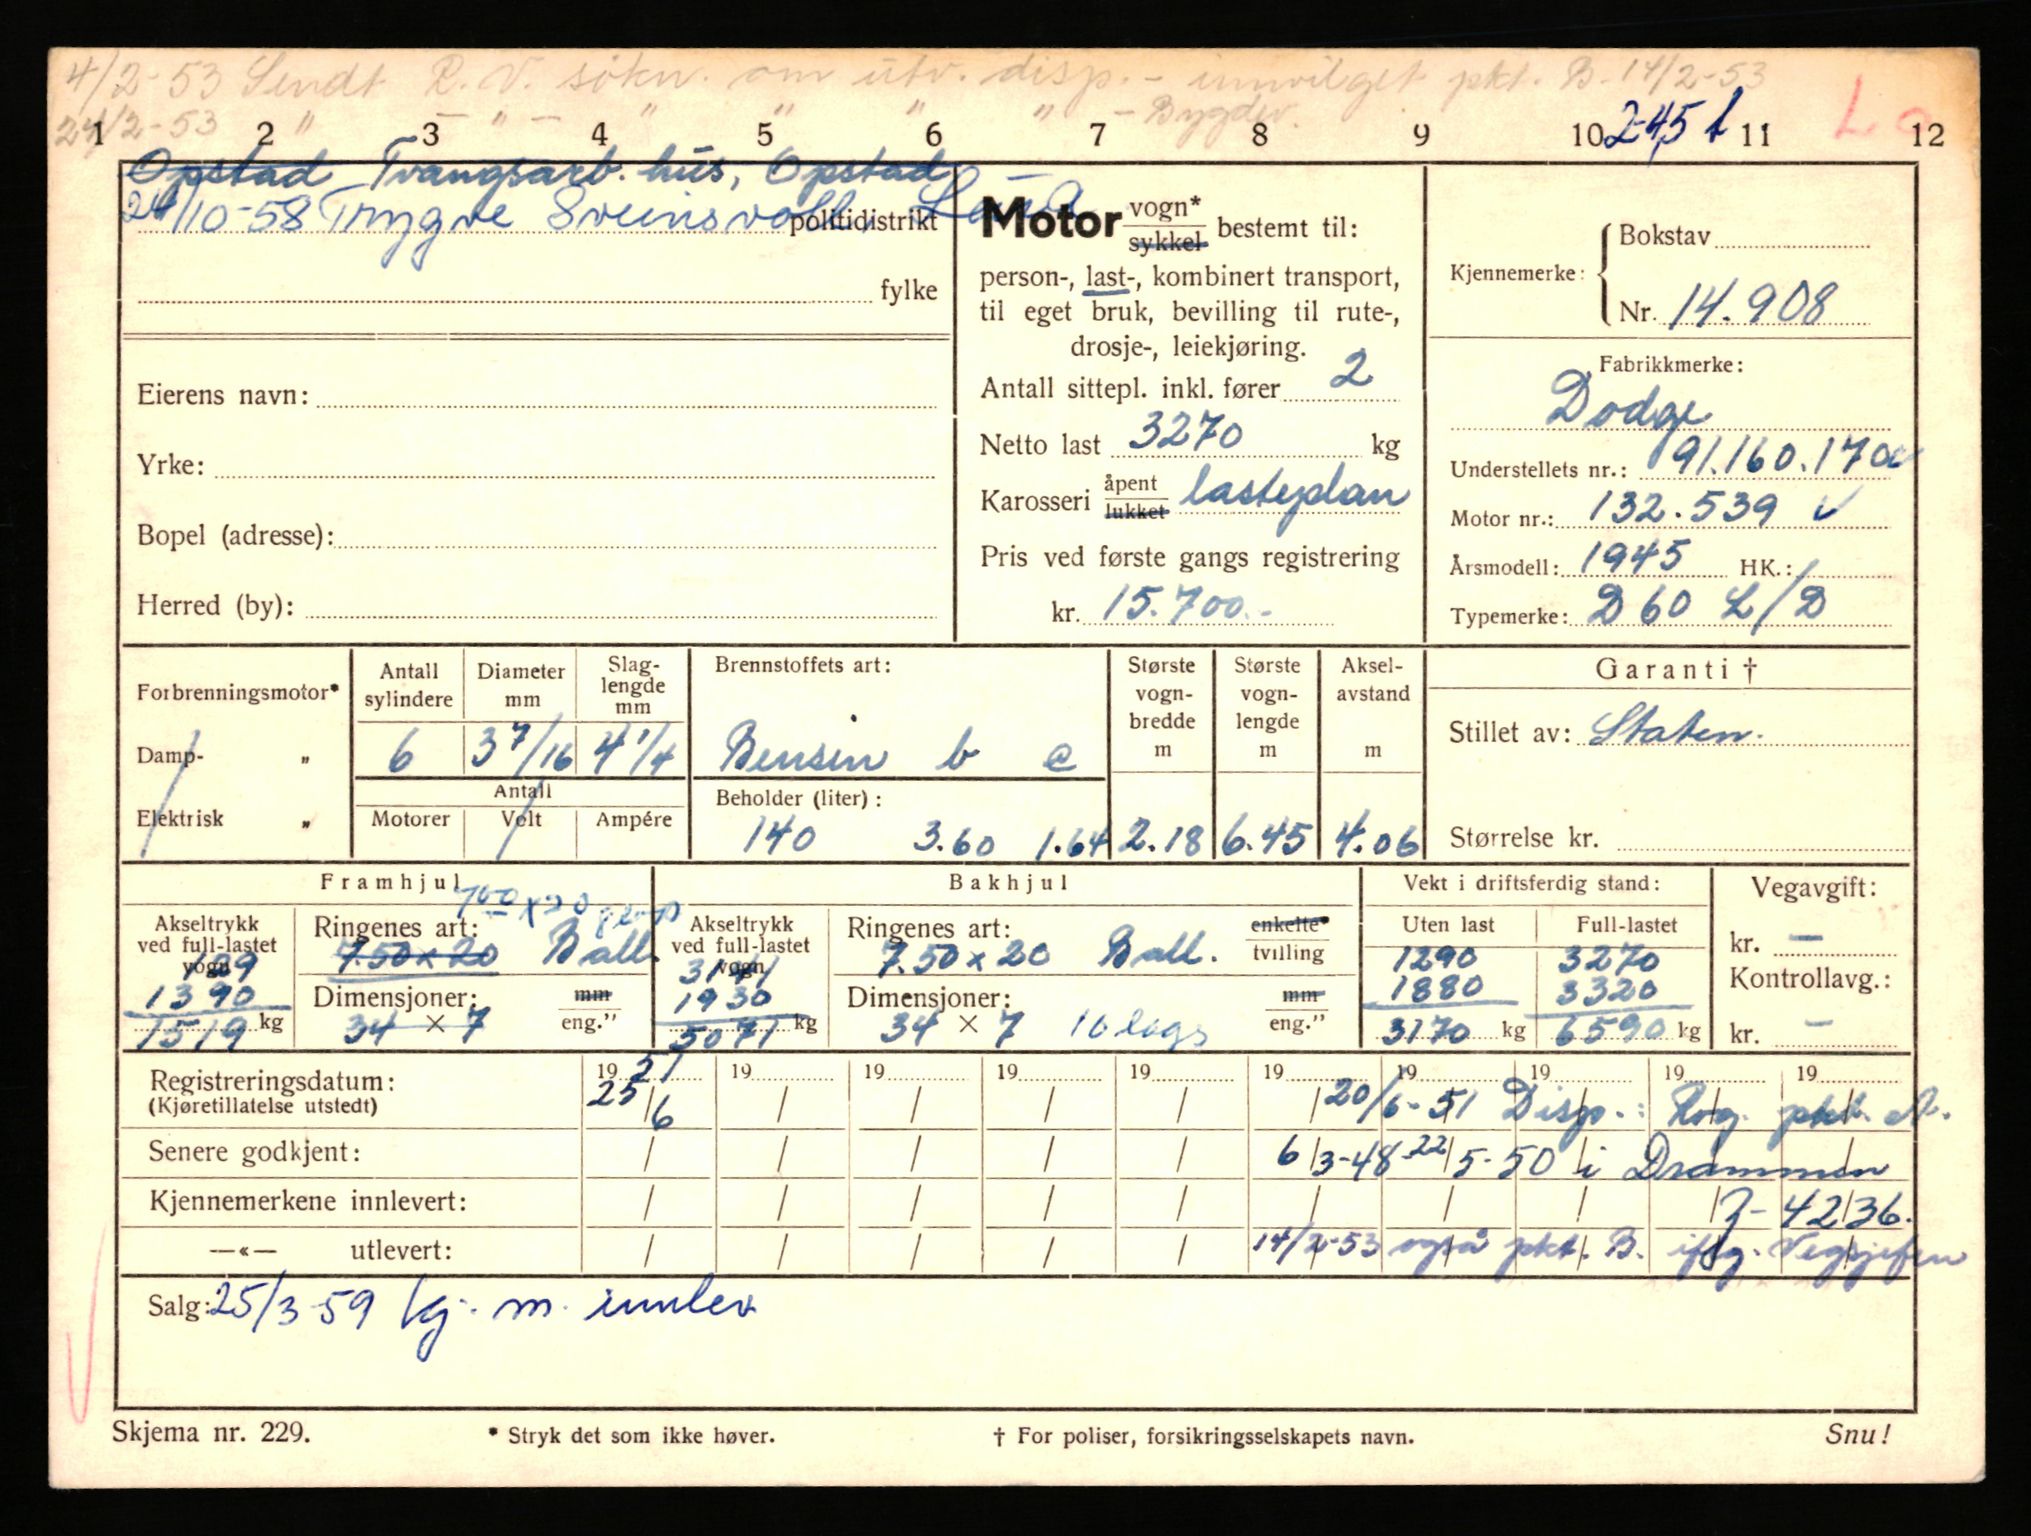 4/2-53 Sendt R.V. søkn. om utv. disp. - innvilget pkt. B. 14/2-53
24/2-53 " — " — " " " " - Bygdev.
1 2 3 4 5 6 7 8 9 10 11 12
245 t
Opstad Tvangsarb. hus, Opstad
24/10-58 Trygve Sveinsvoll, politidistrikt
fylke
Eierens navn:
Yrke:
Bopel (adresse):
Herred (by):
Motor vogn* sykkel bestemt til:
person-, last-, kombinert transport,
til eget bruk, bevilling til rute-,
drosje-, leiekjøring.
Antall sittepl. inkl. fører 2
Netto last 3270 kg
Karosseri åpent lukket lasteplan
Pris ved første gangs registrering
kr. 15.700.-
Kjennemerke: Bokstav
Nr. 14.908
Fabrikkmerke:
Dodge
Understellets nr.: 91.160.170
Motor nr.: 132.539
Årsmodell: 1945 HK.: /
Typemerke: D 60 L/D
Forbrenningsmotor*
Damp- "
Elektrisk "
Antall sylindere 6
Diameter mm 3 7/16
Slaglengde mm 4 1/4
Antall
Motorer Volt Ampére
Brennstoffets art:
Bensin b c
Beholder (liter):
140 3.60 1.64
Største vogn-bredde m 2.18
Største vogn-lengde m 6.45
Aksel-avstand m 4.06
Garanti †
Stillet av: Staten.
Størrelse kr.
Framhjul
Akseltrykk ved full-lastet vogn
129
1390
1519 kg
Ringenes art: 7.50 x 20 Ball.
Dimensjoner: mm
34 × 7 eng."
Bakhjul
Akseltrykk ved full-lastet vogn
3141
1930
5071 kg
Ringenes art: enkelte*
7.50 x 20 Ball. tvilling
Dimensjoner: mm
34 × 7 10 lags eng."
Vekt i driftsferdig stand:
Uten last Full-lastet
1290 3270
1880 3320
3170 kg 6590 kg
Vegavgift:
kr. —
Kontrollavg.:
kr. —
Registreringsdatum: 1951 19 19 19 19 19 19 19 19 19
(Kjøretillatelse utstedt) 25/6 20/6-51 Disp.: Rog. pkt. A.
Senere godkjent: 6/3-48 22/5-50 i Drammen
Kjennemerkene innlevert: Z-4236.
—«— utlevert: 14/2-53 også pkt. B. iflg. Vegsjefen
Salg: 25/3-59 kj. m. innlev
Skjema nr. 229. * Stryk det som ikke høver. † For poliser, forsikringsselskapets navn. Snu!